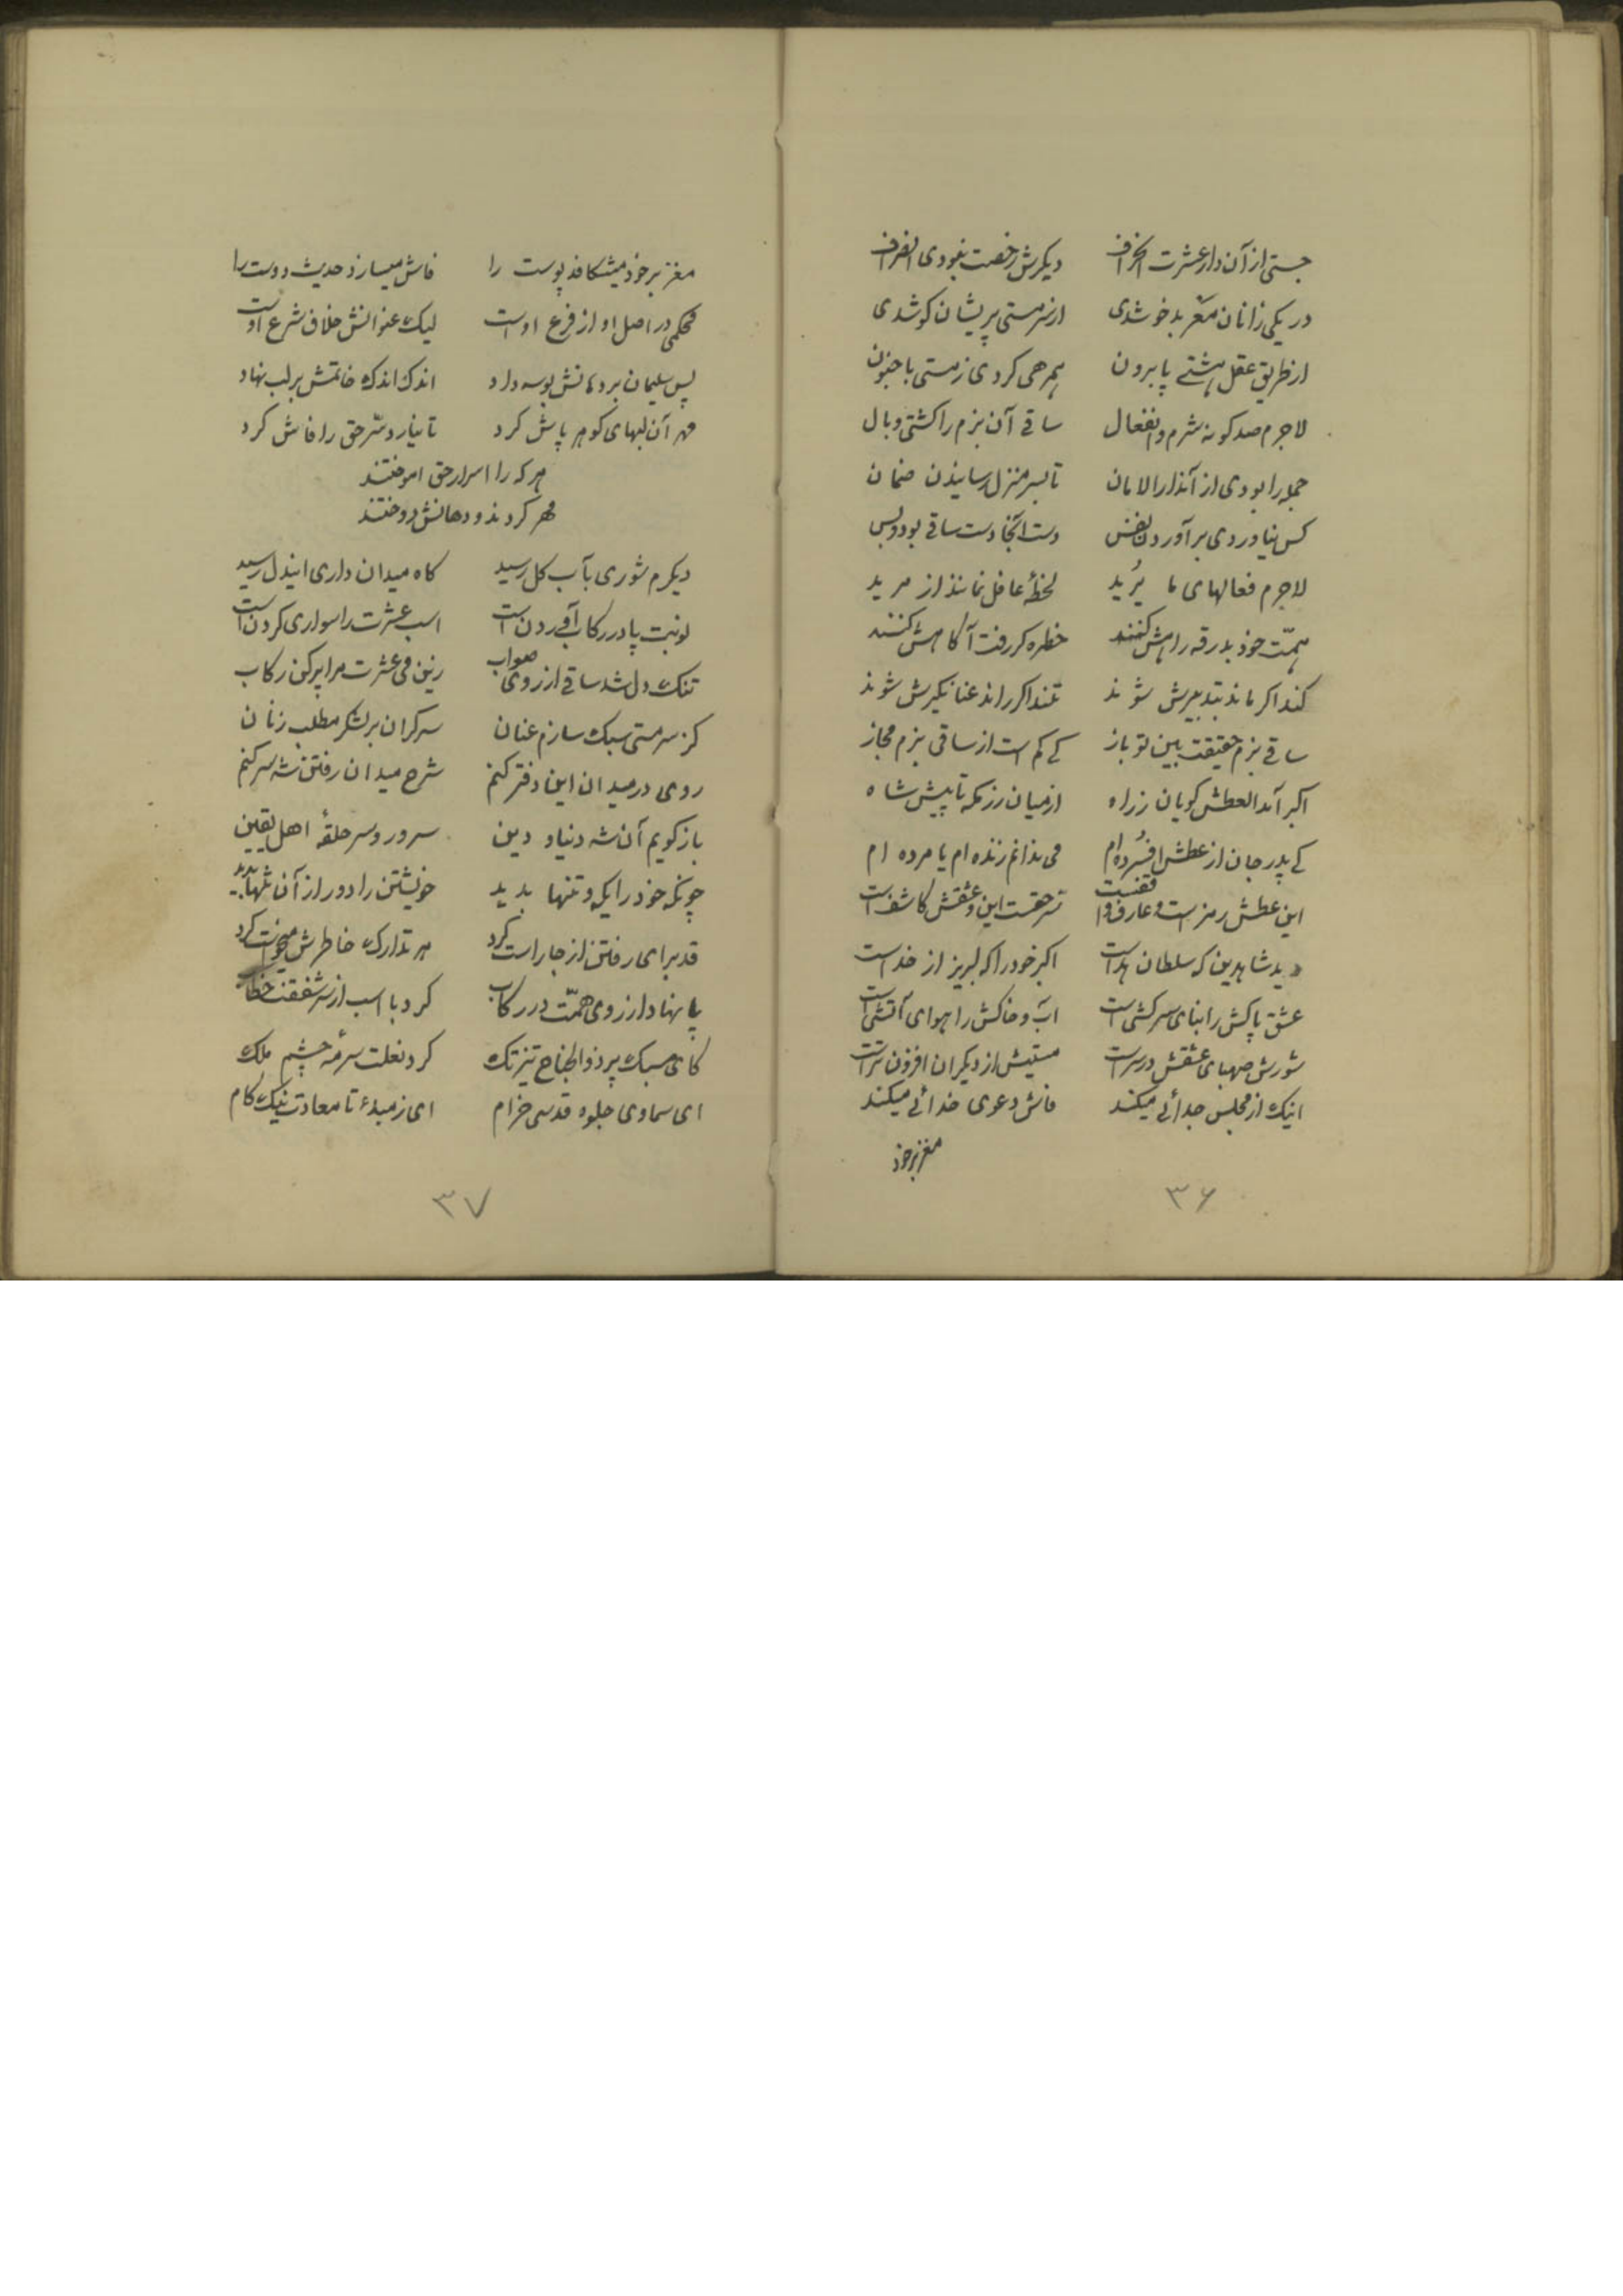 جستی از آن دار عشرت انحراف دیکرش رخصت نبودی انصراف
در یکی زانان معربد خو شدی از سرمستی پریشان کو شدی
از طریق عقل هشتی پا برون همرهی کردی زمستی با جنون
لاجرم صد کونه شرم و انفعال ساقی آن بزم را کشتی وبال
جمله را بودی از آندارالامان تا بسر منزل رسانیدن ضمان
کس نیاوردی برآوردن نفس دست آنجا دست ساقی بود و بس
لاجرم فعالهای ما یُرید لحظهٔ غافل نمانند از مرید
همّت خود بدرقه راهش کنند خطره کر رفت آکاهش کنند
کند اکر ماند بتدبیرش شوند تند اکر راند عنانکیرش شوند
ساقی بزم حقیقت بین تو باز کی کم است از ساقی بزم مجاز
اکبر آمد العطش کویان ز راه از میان رزمکه تا پیش شاه
کی پدر جان از عطش افسرده ام می ندانم زنده ام یا مرده ام
این عطش رمز است و عارف واقفست سرّ حقست این و عشقش کاشف است
دید شاه دین که سلطان هداست اکبر خود را که لبریز از خداست
عشق پاکش را بنای سرکشی است آب و خاکش را هوای آتشی است
شورش صهبای عشقش در سر است مستیش از دیکران افزون تر است
اینک از مجلس جدائی میکند فاش دعوی خدائی میکند
مغز بر خود
۳۶
مغز بر خود میشکافد پوست را فاش میسازد حدیث دوست را
محکمی در اصل او از فرع اوست لیک عنوانش خلاف شرع اوست
پس سلیمان بر دهانش بوسه داد اندک اندک خاتمش بر لب نهاد
مهر آن لبهای کوهر پاش کرد تا نیارد سرّ حق را فاش کرد
هر که را اسرار حق آموختند
مهر کردند و دهانش دوختند
دیکرم شوری بآب کل رسید کاه میدان داری ایندل رسید
نوبت پا در رکاب آوردن است اسب عشرت را سواری کردن است
تنک دل شد ساقی از روی صواب زین می عشرت مرا پر کن رکاب
کز سر مستی سبک سازم عنان سرکران بر لشکر مطلب زنان
روی در میدان این دفتر کنم شرح میدان رفتن شه سر کنم
باز کویم آن شه دنیا و دین سرور و سر حلقهٔ اهل یقین
چونکه خود را یکه و تنها بدید خویشتن را دور از آن تنها بدید
قد برای رفتن از جا راست کرد هر تدارک خاطرش میخواست کرد
پا نهاد از روی همّت در رکاب کرد با اسب از سر شفقت خطاب
کای سبک پر ذوالجناح تیز تک کرد نعلت سرمهٔ چشم ملک
ای سماوی جلوه قدسی خرام ای ز مبدء تا معادت نیک کام
۳۷